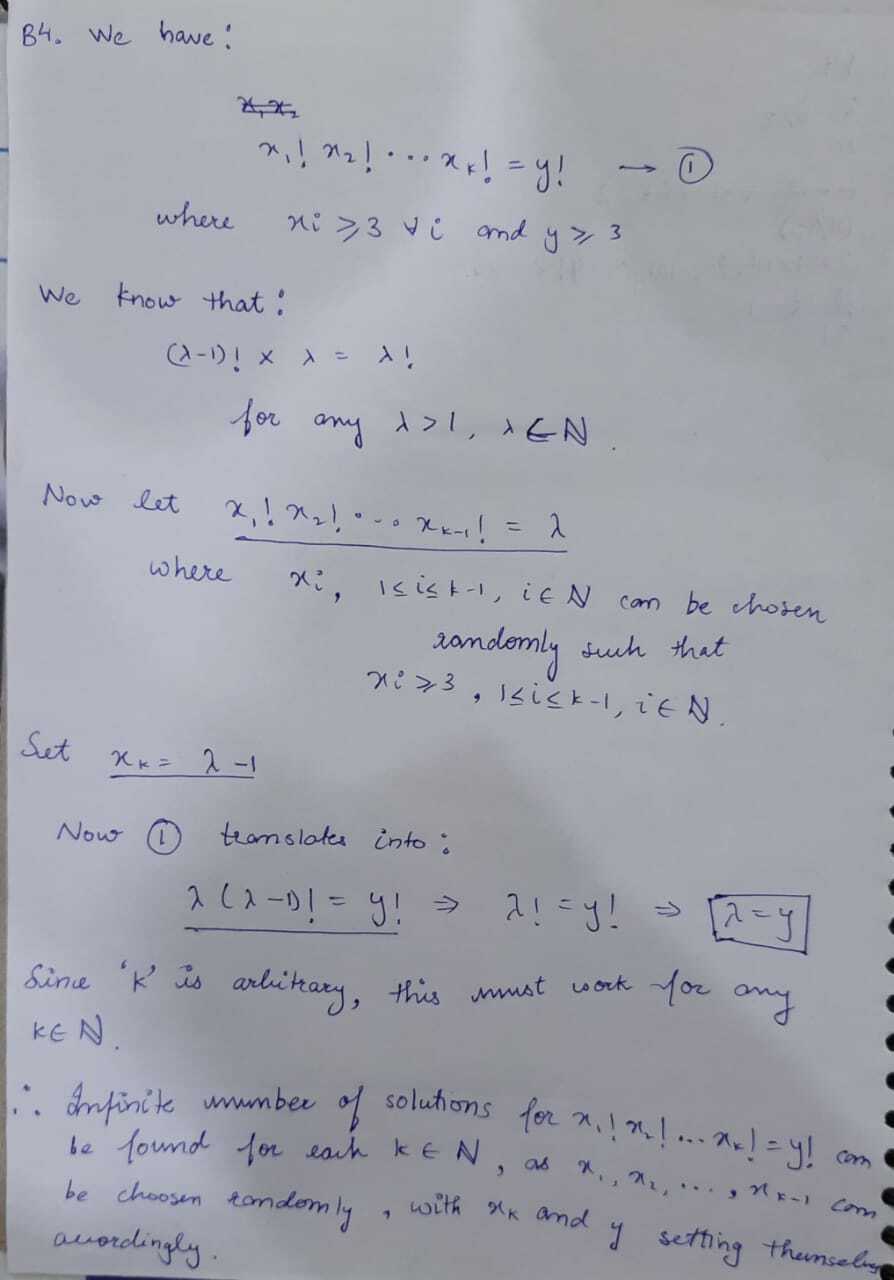 B4. We have:
x₁!x₂!...xₖ! = y! → ①
where xi ≥ 3 ∀i and y ≥ 3
We know that:
(λ-1)! × λ = λ!
for any λ>1, λ∈ℕ.
Now let x₁!x₂!...xₖ₋₁! = λ
where xi, 1≤i≤k-1, i∈ℕ can be chosen
randomly such that
xi≥3, 1≤i≤k-1, i∈ℕ.
Set xₖ = λ-1
Now ① translates into:
λ(λ-1)! = y! ⇒ λ! = y! ⇒ λ=y
Since 'k' is arbitrary, this must work for any
k∈ℕ.
∴ Infinite number of solutions for x₁!x₂!...xₖ! = y! can
be found for each k∈ℕ, as x₁, x₂, ..., xₖ₋₁ can
be choosen randomly, with xₖ and y setting themselves
accordingly.